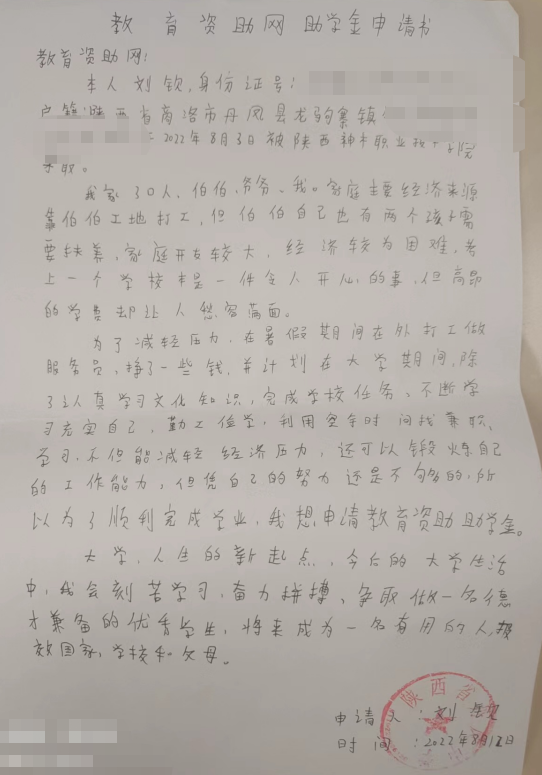 教育资助网助学金申请书
教育资助网:
本人刘钦,身份证号:
户籍:陕西省商洛市丹凤县龙驹寨镇
2022年8月3日被陕西神木职业技术学院
录取。
我家30人,伯伯、爷爷、我。家庭主要经济来源
靠伯伯工地打工,但伯伯自己也有两个孩子需
要扶养,家庭开支较大,经济较为困难,考
上一个学校本是一件令人开心的事,但高昂
的学费却让人愁容满面。
为了减轻压力,在暑假期间在外打工做
服务员,挣了一些钱,并计划在大学期间,除
了认真学习文化知识,完成学校任务、不断学
习充实自己,勤工俭学,利用空余时间找兼职、
学习,不但能减轻经济压力,还可以锻炼自己
的工作能力,但凭自己的努力还是不够的,所
以为了顺利完成学业,我想申请教育资助助学金。
大学,人生的新起点,今后的大学生活
中,我会刻苦学习,奋力拼搏、争取做一名德
才兼备的优秀学生,将来成为一名有用的人,报
效国家、学校和父母。
陕西省
申请人:刘钦
时间:2022年8月12日